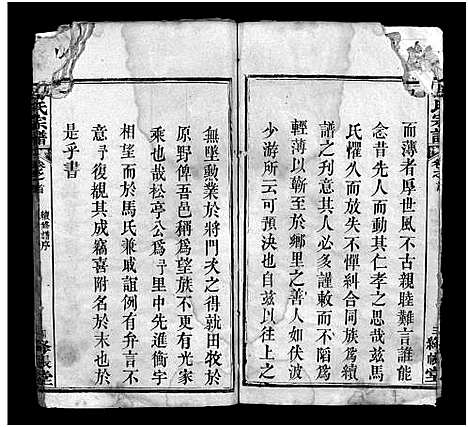 而薄者厚世風不古親睦難言誰能
念昔先人而動其仁孝之思哉茲馬
氏懼久而放失不憚糾合同族爲續
譜之刊其人必多謹敕而不陷爲
輕薄以蘄至於鄉里之善人如伏波
少游所云可預決也自兹以往上之
無墜勳業於將門次之得躭田牧於
原野俾吾邑稱爲望族不更有光家
乘也哉松亭公爲予里中先進衡宇
相望而於馬氏兼戚誼例有弁言不
意予復親其成竊喜附名於末也於
是乎書
氏宗譜
卷之首
續修譜序
絳帳堂
氏宗譜
卷之首
絳帳堂